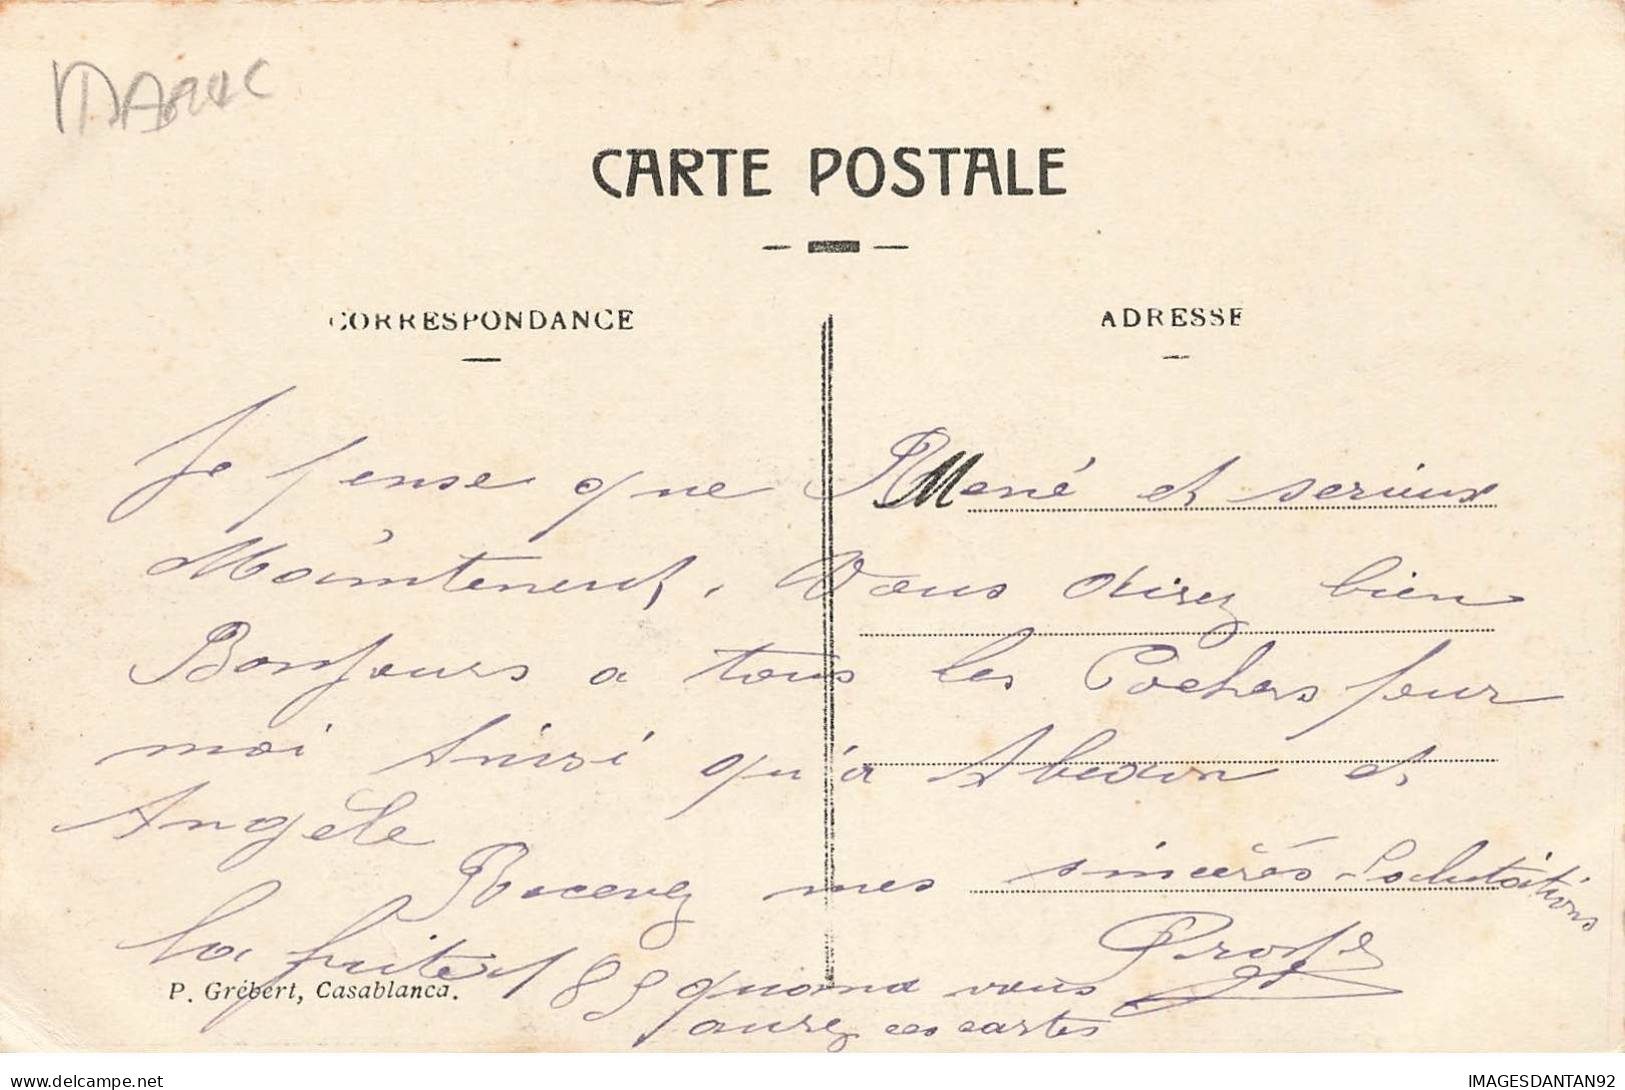 MAROC
CARTE POSTALE
CORRESPONDANCE
ADRESSE
Je pense que René et serieux
Maintenent. Vous direz bien
Bonjours a tous les Pochers pour
moi Ainsi qu'à et
Angèle
Recevez mes sincères Salutations
la fuite 85 quand vous
aurez ces cartes
P. Grébert, Casablanca.
delcampe.net
IMAGESDANTAN92